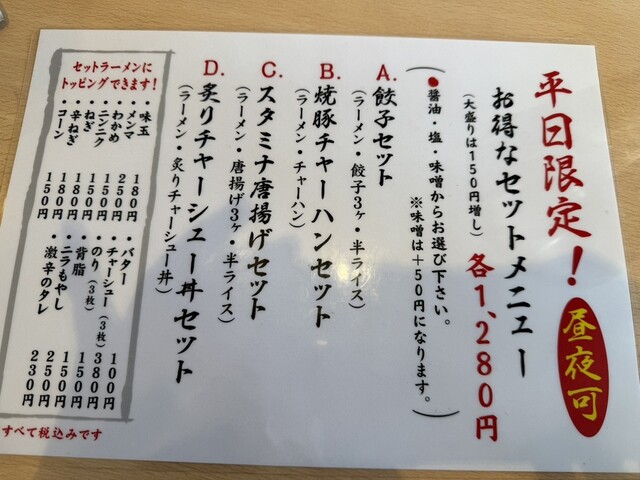 平日限定！
昼夜可
お得なセットメニュー
各1,280円
（大盛りは150円増し）
●醤油・塩・味噌からお選び下さい。
※味噌は＋50円になります。
A.餃子セット
（ラーメン・餃子3ヶ・半ライス）
B.焼豚チャーハンセット
（ラーメン・チャーハン）
C.スタミナ唐揚げセット
（ラーメン・唐揚げ3ヶ・半ライス）
D.炙りチャーシュー丼セット
（ラーメン・炙りチャーシュー丼）
セットラーメンに
トッピングできます！
・味玉 180円
・メンマ 250円
・わかめ 150円
・ニンニク 100円
・ねぎ 150円
・辛ねぎ 180円
・コーン 150円
・バター 100円
・チャーシュー（3枚） 380円
・のり（3枚） 150円
・背脂 150円
・ニラもやし 250円
・激辛のタレ 230円
すべて税込みです